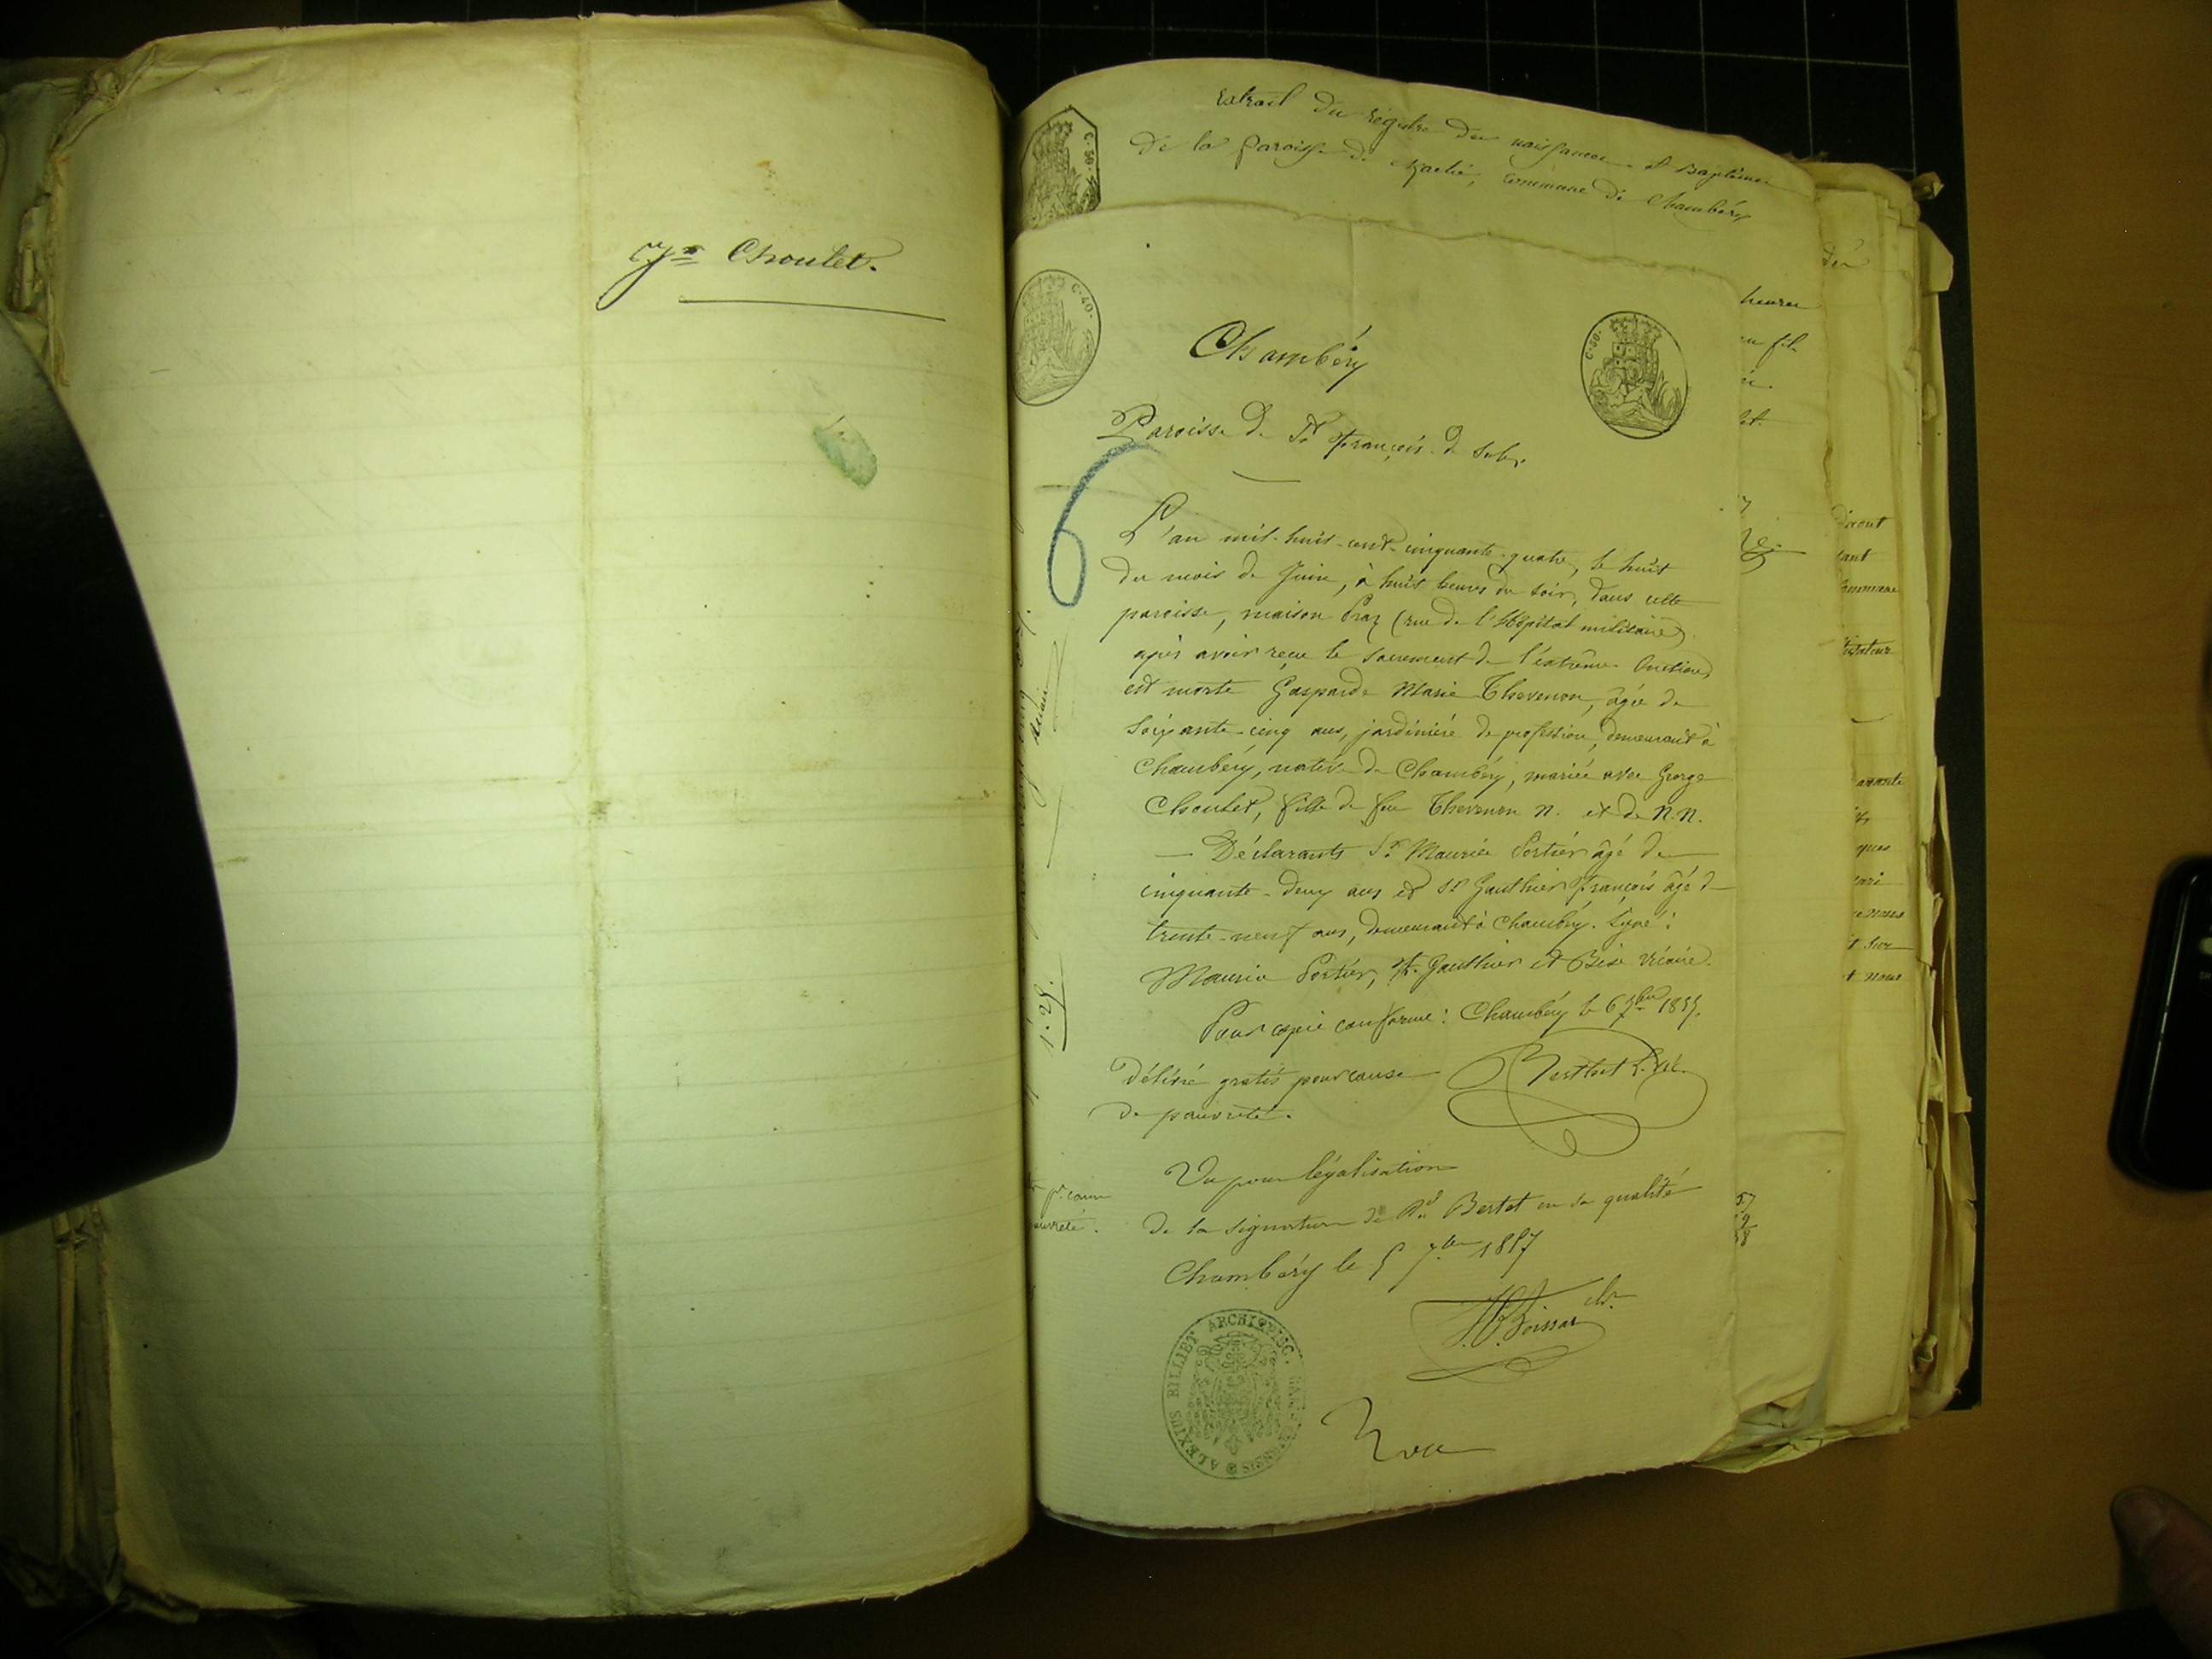 Choulet.
Extrait du régistre des naissances et Baptêmes
de la Paroisse de commune de Chambéry
C. 50.
C. 40.
C. 50.
Chambéry
Paroisse de St François de Sales
6
L'an mil-huit-cent-cinquante-quatre, le huit
du mois de Juin, à huit heures du soir, dans cette
paroisse, maison Praz (rue de l'Hôpital militaire)
après avoir reçu le sacrement de l'extrême Onction
est morte Gasparde Marie Thevenon, âgée de
Soixante-cinq ans, jardinière de profession, demeurant à
Chambéry, native de Chambéry, mariée avec George
Choulet, fille de feu Thevenon N. et de N.N.
— Déclarants Sr Maurice Portier âgé de
cinquante-deux ans et Sr Gauthier François âgé de
trente-neuf ans, demeurant à Chambéry. Signé:
Maurice Portier, Gauthier et vicaire.
Pour copie conforme: Chambéry le 6 7bre
Délivré gratis pour cause
de pauvreté.
Vu pour légalisation
de la signature de Rd Bertet en sa qualité
Chambéry le 7bre 1857
ALEXIUS BILLIET ARCHIEPISC.
1.25.
heures
fil
avant
commune
sur
nous